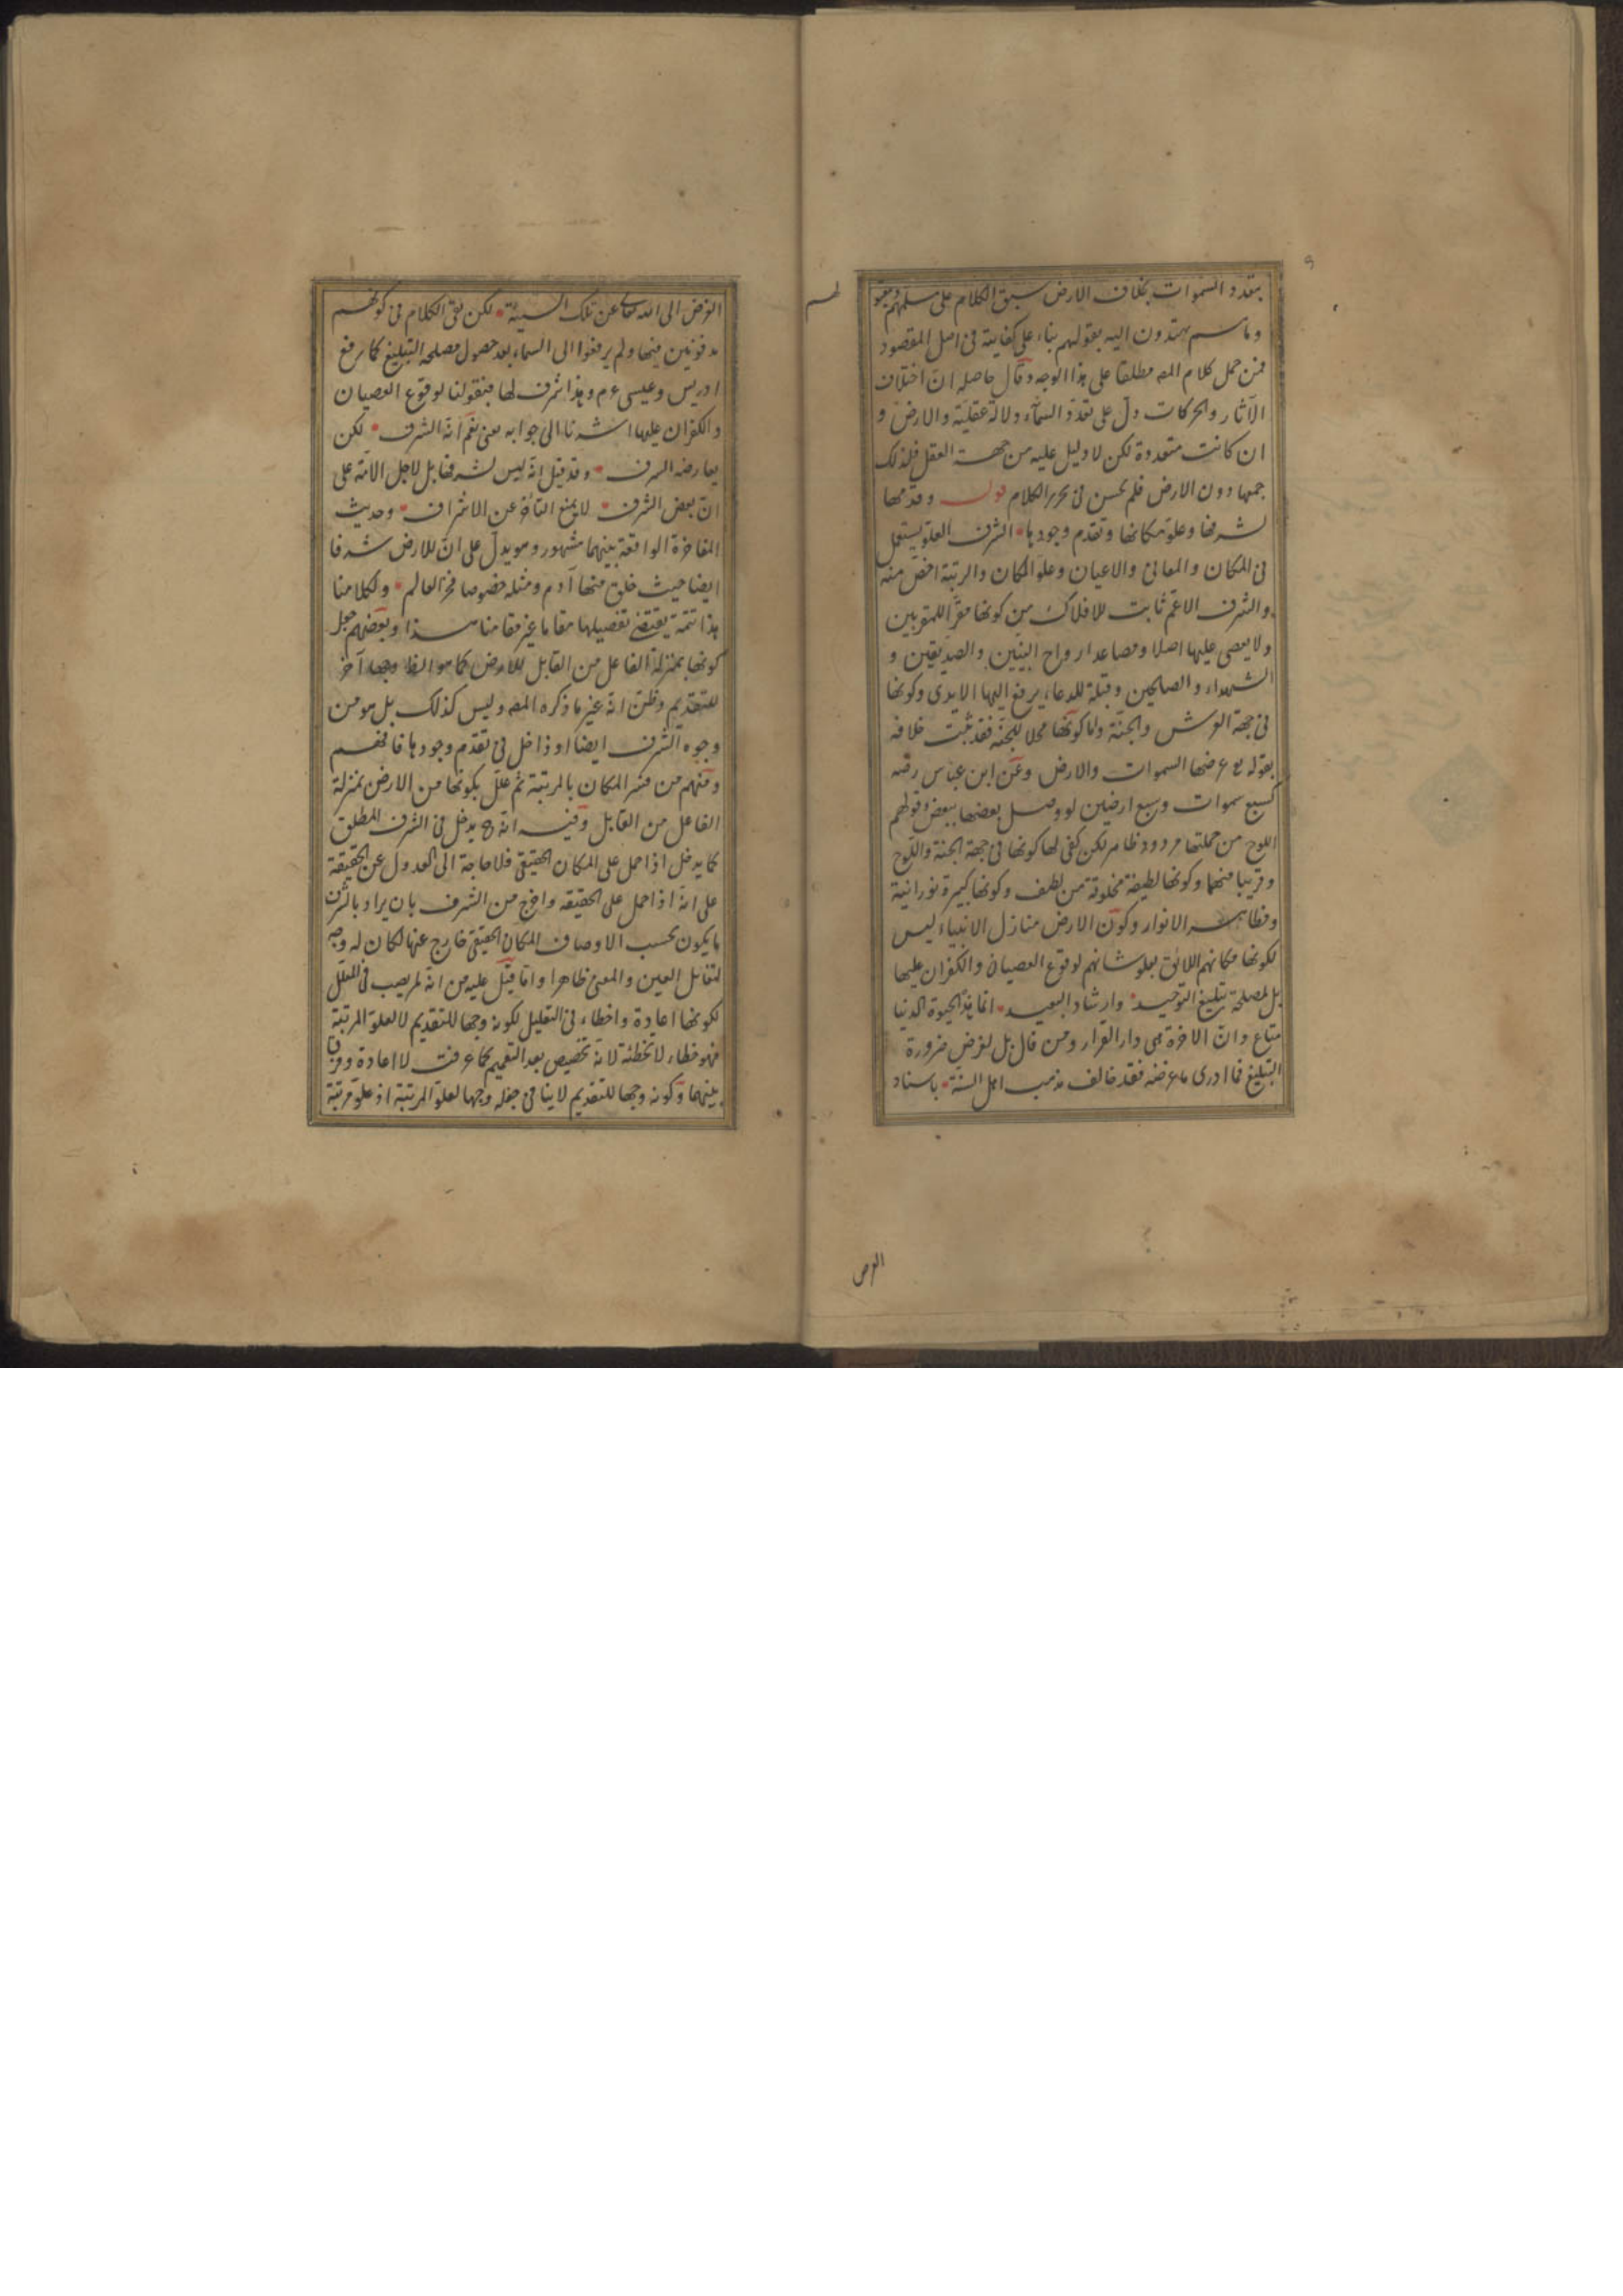 بتعدد السموات بخلاف الارض سيق الكلام على مسلمهم
وما هم يهتدون اليه بعقولهم بناء على كفايته فى اصل المقصود
فمن حمل كلام المصه مطلقا على هذا الوجه وقال حاصله ان اختلاف
الآثار والحركات دل على تعدد السماء دلالة عقلية والارض و
ان كانت متعددة لكن لا دليل عليه من جهة العقل فلذلك
جمعها دون الارض فلم يحسن فى تحرير الكلام قوله وقدمها
لشرفها وعلو مكانها وتقدم وجودها الشرف العلو يستعمل
فى المكان والمعانى والاعيان وعلو المكان والرتبة اخص منه
والشرف الاعم ثابت للافلاك من كونها مقر المقربين
ولا يعصى عليها اصلا ومصاعد ارواح النبيين والصديقين و
الشهداء والصالحين وقبلة للدعاء يرفع اليها الايدى وكونها
فى جهة العرش والجنة واما كونها محلا للجنة فقد ثبت خلافه
بقوله تع عرضها السموات والارض وعن ابن عباس رضه
كسبع سموات وسبع ارضين لو وصل بعضها ببعض وقولهم
اللوح من جملتها مردود ظاهر لكن كفى لها كونها فى جهة الجنة واللوح
وقريبا منهما وكونها لطيفة مخلوقة من لطف وكونها كبيرة نورانية
ومظاهر الانوار وكون الارض منازل الانبياء ليس
لكونها مكانهم اللائق بعلو شانهم لوقوع العصيان والكفران عليها
بل لمصلحة تبليغ التوحيد وارشاد البعيد انما هذه الحيوة الدنيا
متاع وان الاخرة هى دار القرار ومن قال بل لغرض ضرورة
التبليغ فما ادرى ما غرضه فقد خالف مذهب اهل السنة باسناد
الغرض
الغرض الى الله تعالى عن تلك السيئة لكن بقى الكلام فى كونهم
مدفونين فيها ولم يرفعوا الى السماء بعد حصول مصلحة التبليغ كما رفع
ادريس وعيسى ع م وهذا شرف لها فبقولنا لوقوع العصيان
والكفران عليها اشرنا الى جوابه يعنى نعم انه الشرف لكن
يعارضه السرف وقد قيل انه ليس لشرفها بل لاجل الامة على
ان بعض الشرف لا يمنع التأخر عن الاشراف وحديث
المفاخرة الواقعة بينهما مشهور وهو يدل على ان للارض شرفا
ايضا حيث خلق منها آدم ومثله خصوصا فخر العالم ولكلامنا
هذا تتمة يقتضى تفصيلها مقاما غير مقامنا هذا وبعضهم جعل
كونها بمنزلة الفاعل من القابل للارض كما هو الظ وجها آخر
للتقديم وظن انه غير ما ذكره المصه وليس كذلك بل هو من
وجوه الشرف ايضا او داخل فى تقدم وجودها فافهم
ومنهم من فسر المكان بالمرتبة ثم علل بكونها من الارض بمنزلة
الفاعل من القابل وفيه انه ح يدخل فى الشرف المطلق
كما يدخل اذا حمل على المكان الحقيقى فلا حاجة الى العدول عن الحقيقة
على انه اذا حمل على الحقيقه واخرج من الشرف بان يراد بالشرف
ما يكون بحسب الاوصاف المكان الحقيقى خارج عنها لكان له وجه
لتقابل العين والمعنى ظاهرا واما قيل عليه من انه لم يصب فى العلل
لكونها اعادة واخطاء فى التعليل لكونه وجها للتقديم لا لعلو المرتبة
فهو خطاء لا تخطئة لانه تخصيص بعد التعميم كما عرفت لا اعادة وفرق
بينهما وكونه وجها للتقديم لا ينافى جعله وجها لعلو المرتبة اذ علو مرتبة